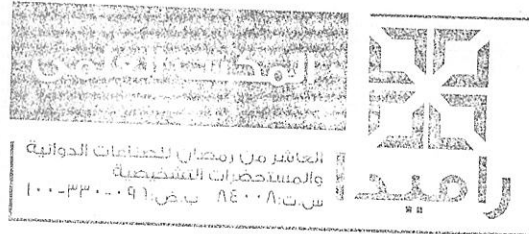 المكتب العلمى
راميد
العاشر من رمضان للصناعات الدوائية
والمستحضرات التشخيصية
س.ت:٨٤٠٠٨ ب.ض: